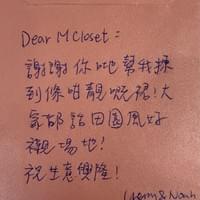 Dear M Closet :
謝謝你哋幫我揀
到條咁靚嘅裙!大
家都話田園風好
襯場地!
祝生意興隆!
& Noah